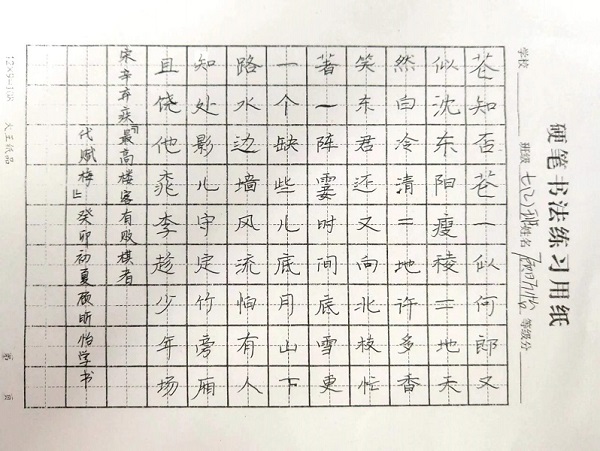 硬笔书法练习用纸
学校 班级 七(2)班 姓名 顾昕怡 等级分
花知否花一似何郎又
似沈东阳瘦棱二地天
然白冷清二地许多香
笑东君还又向北枝忙
著一阵霎时间底雪更
一个缺些儿底月山下
路水边墙风流怕有人
知处影儿守定竹旁厢
且饶他桃李趁少年场
宋辛弃疾『最高楼客有败棋者
代赋梅』癸卯初夏顾昕怡学书
第 页